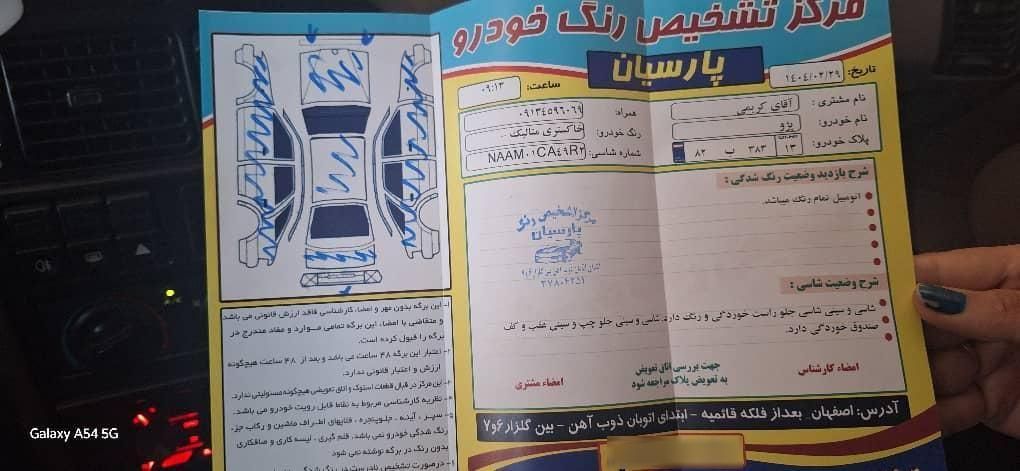 مرکز تشخیص رنگ خودرو
پارسیان
تاریخ: ۱۴۰۴/۰۲/۲۹
ساعت: ۰۹:۱۳
نام مشتری: آقای کریمی
همراه: ۰۹۱۳۴۵۹۶۰۶۹
نام خودرو: پژو
رنگ خودرو: خاکستری متالیک
پلاک خودرو: ۸۲ ب ۳۸۳ ۱۳
شماره شاسی: NAAM01CA49R2
شرح بازدید وضعیت رنگ شدگی:
اتومبیل تمام رنگ میباشد.
مرکز تشخیص رنگ
پارسیان
۳۷۸۰۴۲۵۱
شرح وضعیت شاسی:
شاسی و سینی شاسی جلو راست خوردگی و رنگ دارد. شاسی و سینی جلو چپ و سینی عقب و کف
صندوق خوردگی دارد.
امضاء کارشناس
جهت بررسی اتاق تعویض
به تعویض پلاک مراجعه شود
امضاء مشتری
آدرس: اصفهان - بعداز فلکه قائمیه - ابتدای اتوبان ذوب آهن - بین گلزار ۶و۷
۱- این برگه بدون مهر و امضاء کارشناسی فاقد ارزش قانونی می باشد
و متقاضی با امضاء، این برگه تمامی موارد و مفاد مندرج در
برگه را قبول کرده است.
۲- اعتبار این برگه ۴۸ ساعت می باشد و بعد از ۴۸ ساعت هیچگونه
ارزش و اعتبار قانونی ندارد.
۳- این مرکز در قبال قطعات استوک و اتاق تعویضی هیچگونه مسئولیتی ندارد.
۴- نظریه کارشناسی مربوط به نقاط قابل رویت خودرو می باشد.
۵- سپر، آینه، جلوپنجره، قلابهای اطراف ماشین و رکاب جزء
رنگ شدگی خودرو نمی باشد. قلم گیری، لیسه کاری و صافکاری
بدون رنگ در برگه نوشته نمی شود
Galaxy A54 5G